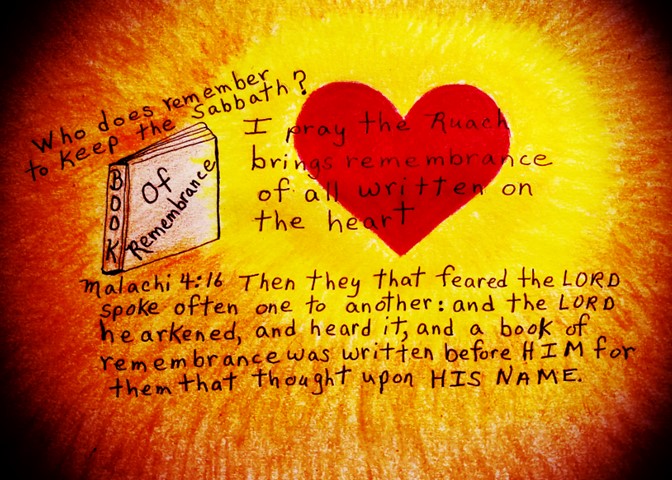 Who does remember
to keep the Sabbath?
BOOK
Of
Remembrance
I pray the Ruach
brings remembrance
of all written on
the heart
Malachi 4:16 Then they that feared the LORD
spoke often one to another: and the LORD
hearkened, and heard it, and a book of
remembrance was written before HIM for
them that thought upon HIS NAME.